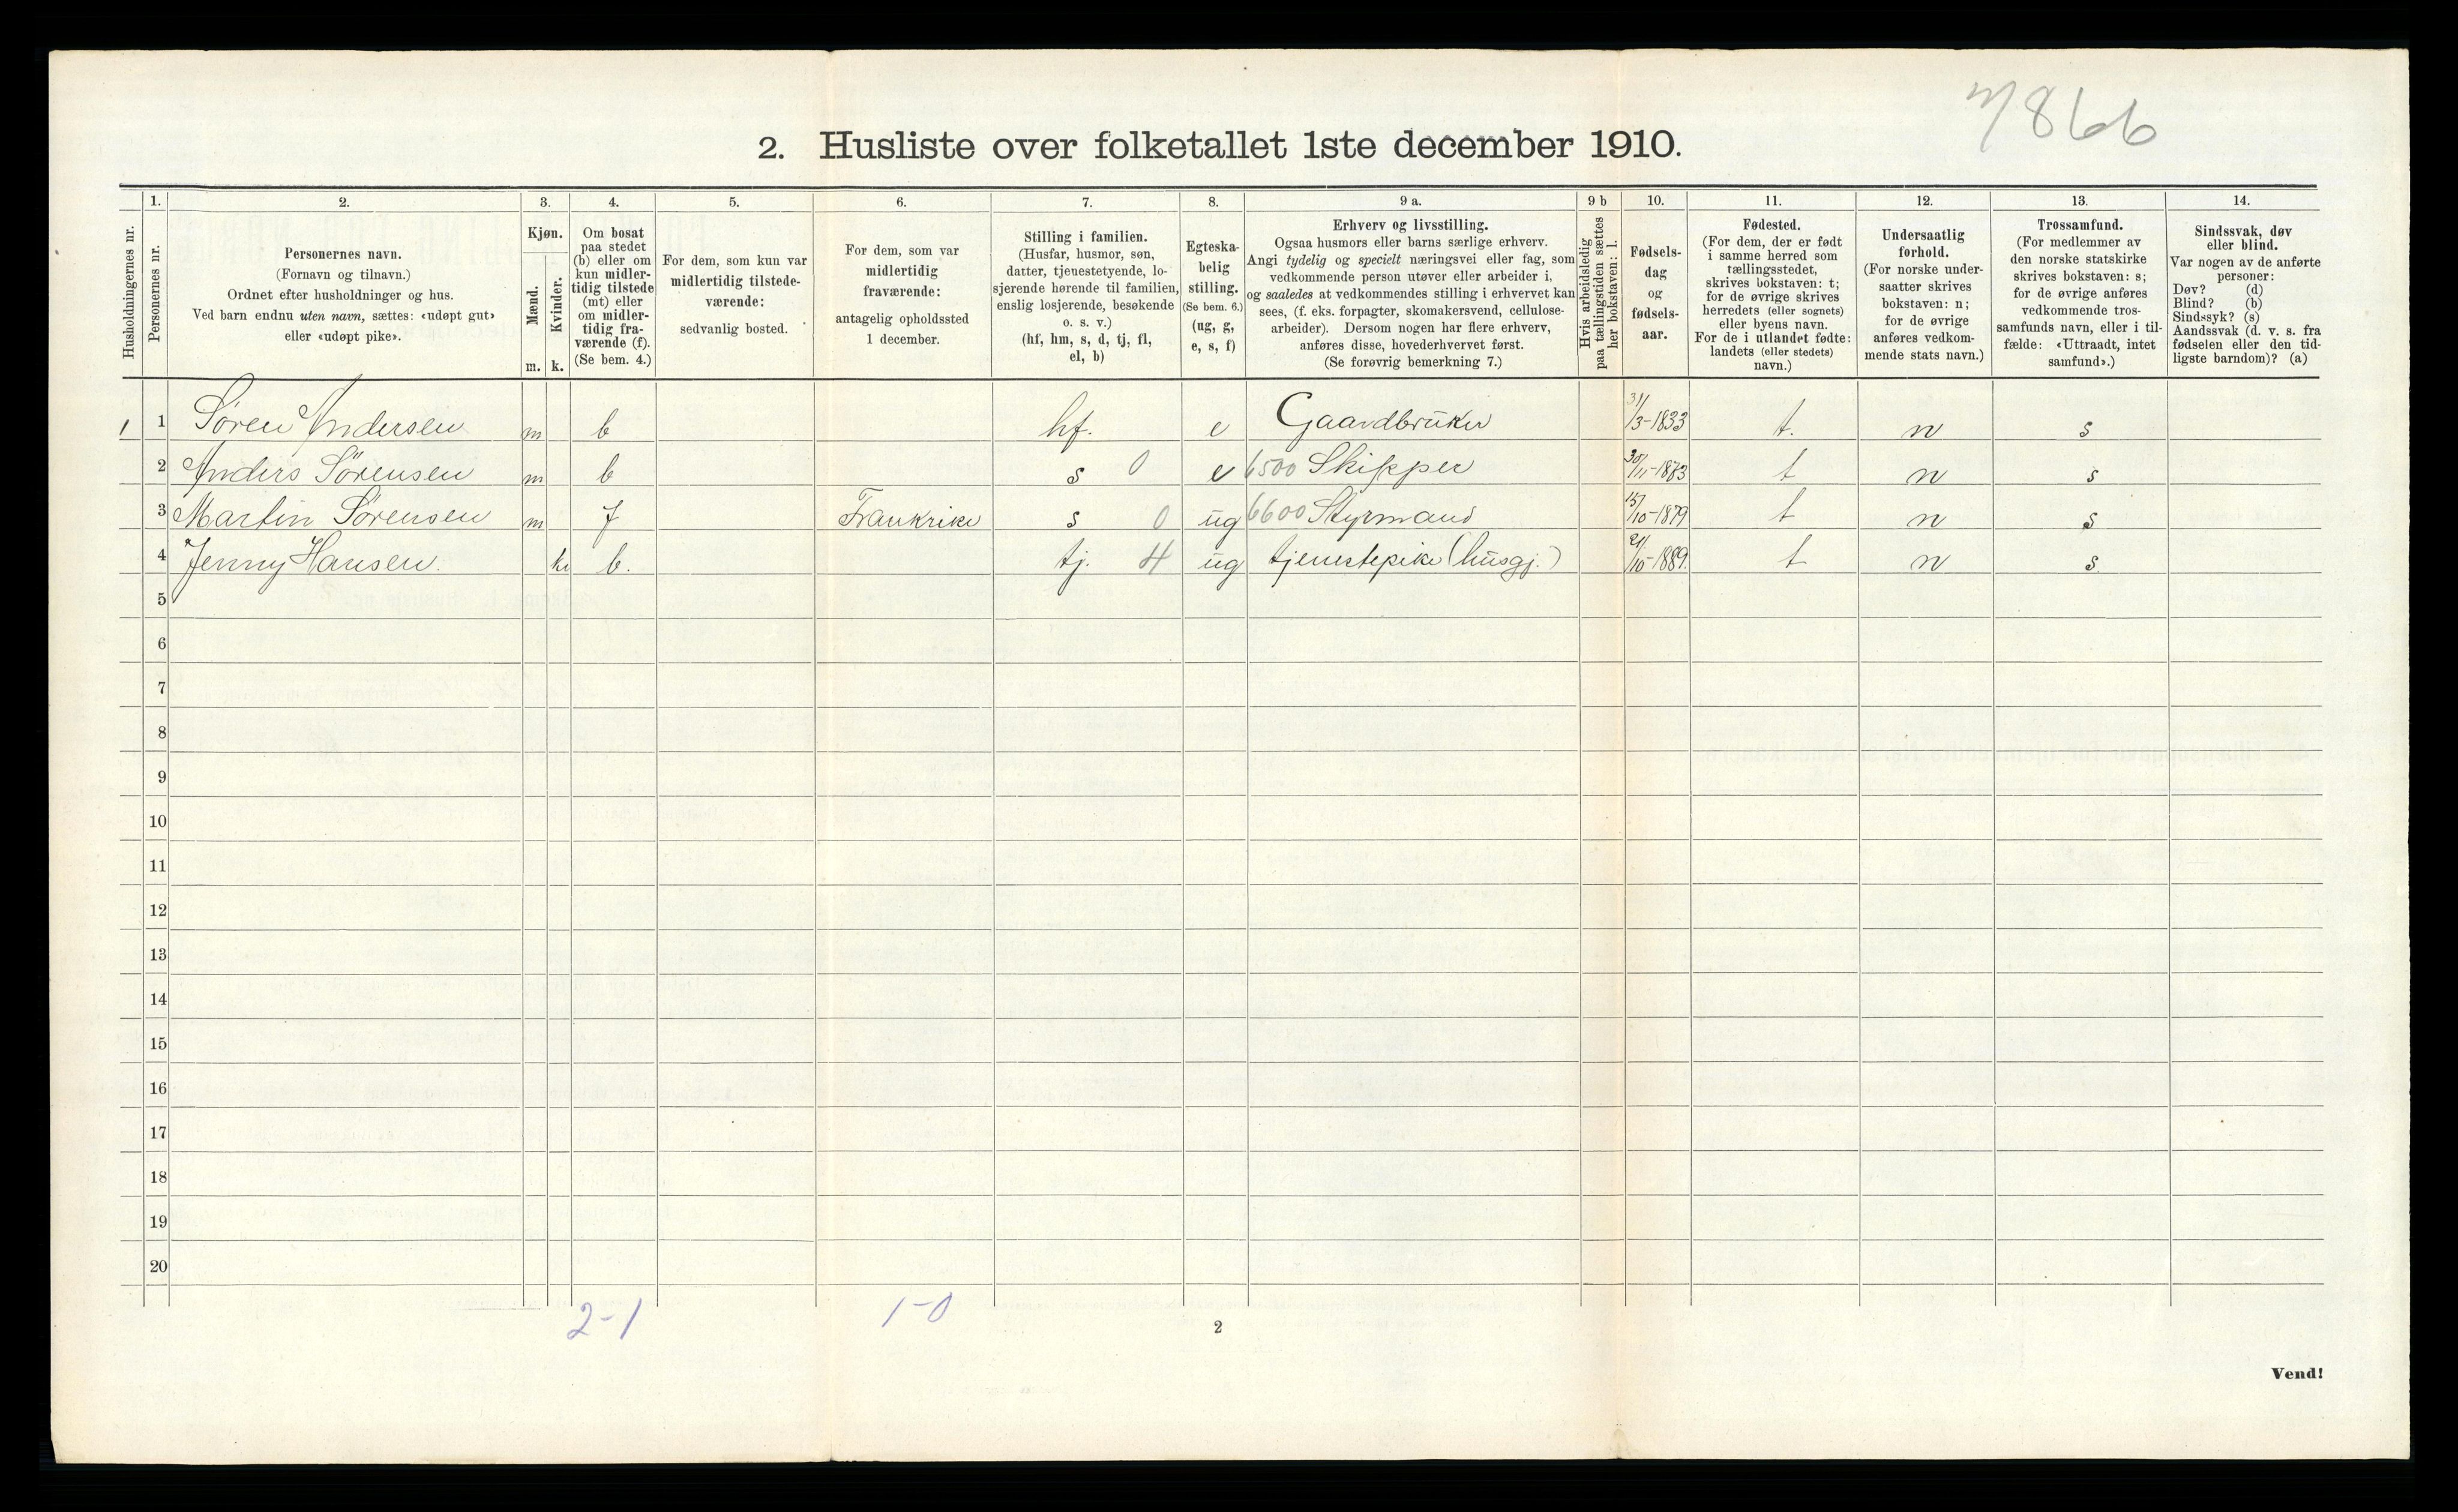 7866
2. Husliste over folketallet 1ste december 1910.
Husholdningernes nr.
1.
Personernes nr.
2.
Personernes navn.
(Fornavn og tilnavn.)
Ordnet efter husholdninger og hus.
Ved barn endnu uten navn, sættes: «udøpt gut»
eller «udøpt pike».
3.
Kjøn.
Mænd.
Kvinder.
m. k.
4.
Om bosat
paa stedet
(b) eller om
kun midler-
tidig tilstede
(mt) eller
om midler-
tidig fra-
værende (f).
(Se bem. 4.)
5.
For dem, som kun var
midlertidig tilstede-
værende:
sedvanlig bosted.
6.
For dem, som var
midlertidig
fraværende:
antagelig opholdssted
1 december.
7.
Stilling i familien.
(Husfar, husmor, søn,
datter, tjenestetyende, lo-
sjerende hørende til familien,
enslig losjerende, besøkende
o. s. v.)
(hf, hm, s, d, tj, fl,
el, b)
8.
Egteska-
belig
stilling.
(Se bem. 6.)
(ug, g,
e, s, f)
9 a.
Erhverv og livsstilling.
Ogsaa husmors eller barns særlige erhverv.
Angi tydelig og specielt næringsvei eller fag, som
vedkommende person utøver eller arbeider i,
og saaledes at vedkommendes stilling i erhvervet kan
sees, (f. eks. forpagter, skomakersvend, cellulose-
arbeider). Dersom nogen har flere erhverv,
anføres disse, hovederhvervet først.
(Se forøvrig bemerkning 7.)
9 b
Hvis arbeidsledig
paa tællingstiden sættes
her bokstaven: l.
10.
Fødsels-
dag
og
fødsels-
aar.
11.
Fødested.
(For dem, der er født
i samme herred som
tællingsstedet,
skrives bokstaven: t;
for de øvrige skrives
herredets (eller sognets)
eller byens navn.
For de i utlandet fødte:
landets (eller stedets)
navn.)
12.
Undersaatlig
forhold.
(For norske under-
saatter skrives
bokstaven: n;
for de øvrige
anføres vedkom-
mende stats navn.)
13.
Trossamfund.
(For medlemmer av
den norske statskirke
skrives bokstaven: s;
for de øvrige anføres
vedkommende tros-
samfunds navn, eller i til-
fælde: «Uttraadt, intet
samfund».)
14.
Sindssvak, døv
eller blind.
Var nogen av de anførte
personer:
Døv? (d)
Blind? (b)
Sindssyk? (s)
Aandssvak (d. v. s. fra
fødselen eller den tid-
ligste barndom)? (a)
1 1 Søren Andersen m b hf. e Gaardbruker 31/3-1833 t. n s
2 Anders Sørensen m b s 0 e 6500 Skipper 30/11-1873 t n s
3 Martin Sørensen m f Frankrike s 0 ug 6600 Styrmand 15/10-1879 t n s
4 Jenny Hansen. k b. tj. H ug tjenestepike (husgj.) 21/10-1889. t n s
5
6
7
8
9
10
11
12
13
14
15
16
17
18
19
20
2-1 1-0
2
Vend!